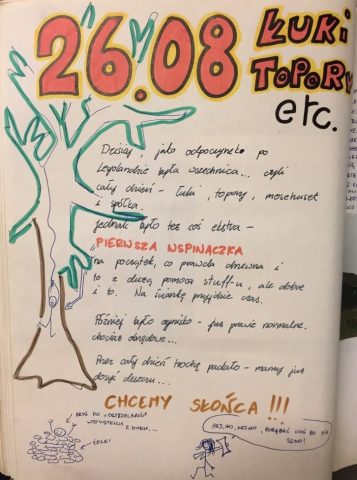 26.08 ŁUKI
TOPORY
etc.
Dzisiaj, jako odpoczynek po
Leylandzie była wszechnica... czyli
cały dzień - łuki, topory,
i spółka.
Jednak było też coś ekstra -
"PIERWSZA WSPINACZKA
na początek, co prawda drzewna i
to z dużą pomocą stuff-u, ale dobre
i to. Na ściankę przyjdzie czas.
Później było ognisko - już prawie normalne,
chociaż obrzędowe...
Przez cały dzień trochę padało - mamy już
dosyć deszczu...
CHCEMY SŁOŃCA !!!
KRĄG DO
WSZYSTKICH
Z ŁUKU...
ŻELKI
HEJ, HO, HEJ HO, PORĄBAĆ COŚ BY SIĘ
SZŁO!